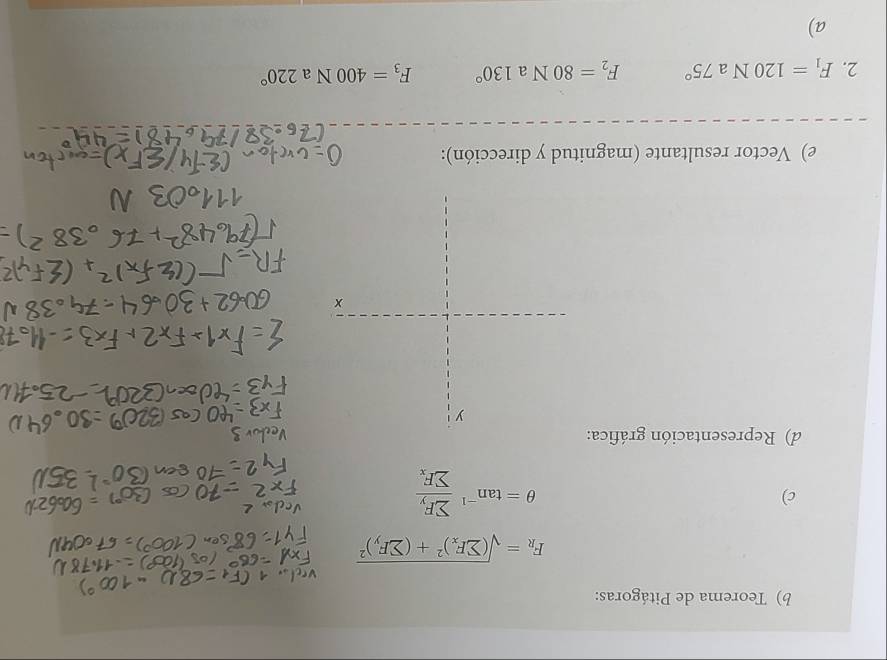 b) Teorema de Pitágoras:
F_R = √(ΣF_x)² + (ΣF_y)²
Vector 1 (F1=68N a 100°)
Fx1=68° cos (100°) = -11.78N
Fy1=68 sen (100°) = 67.04N
c) θ = tan⁻¹ ΣF_y / ΣF_x
Vector 2
Fx2 = 70 cos (30°) = 60.62N
Fy2 = 70 sen (30°) = 35N
d) Representación gráfica:
y
x
Vector 3
Fx3=40 cos (320°) = 30.64N
Fy3=40 sen (320°) = -25.71N
Σ=Fx1+Fx2+Fx3=-11.78
60.62+30.64=79.38N
FR=√((ΣFx)²+(ΣFy)²
√(79.48²+76.382)=
111.03 N
e) Vector resultante (magnitud y dirección):
θ=arctan (ΣFy/ΣFx)=arctan
(76.38/79.48)=44°
2. F₁ = 120 N a 75° F₂ = 80 N a 130° F₃ = 400 N a 220°
a)